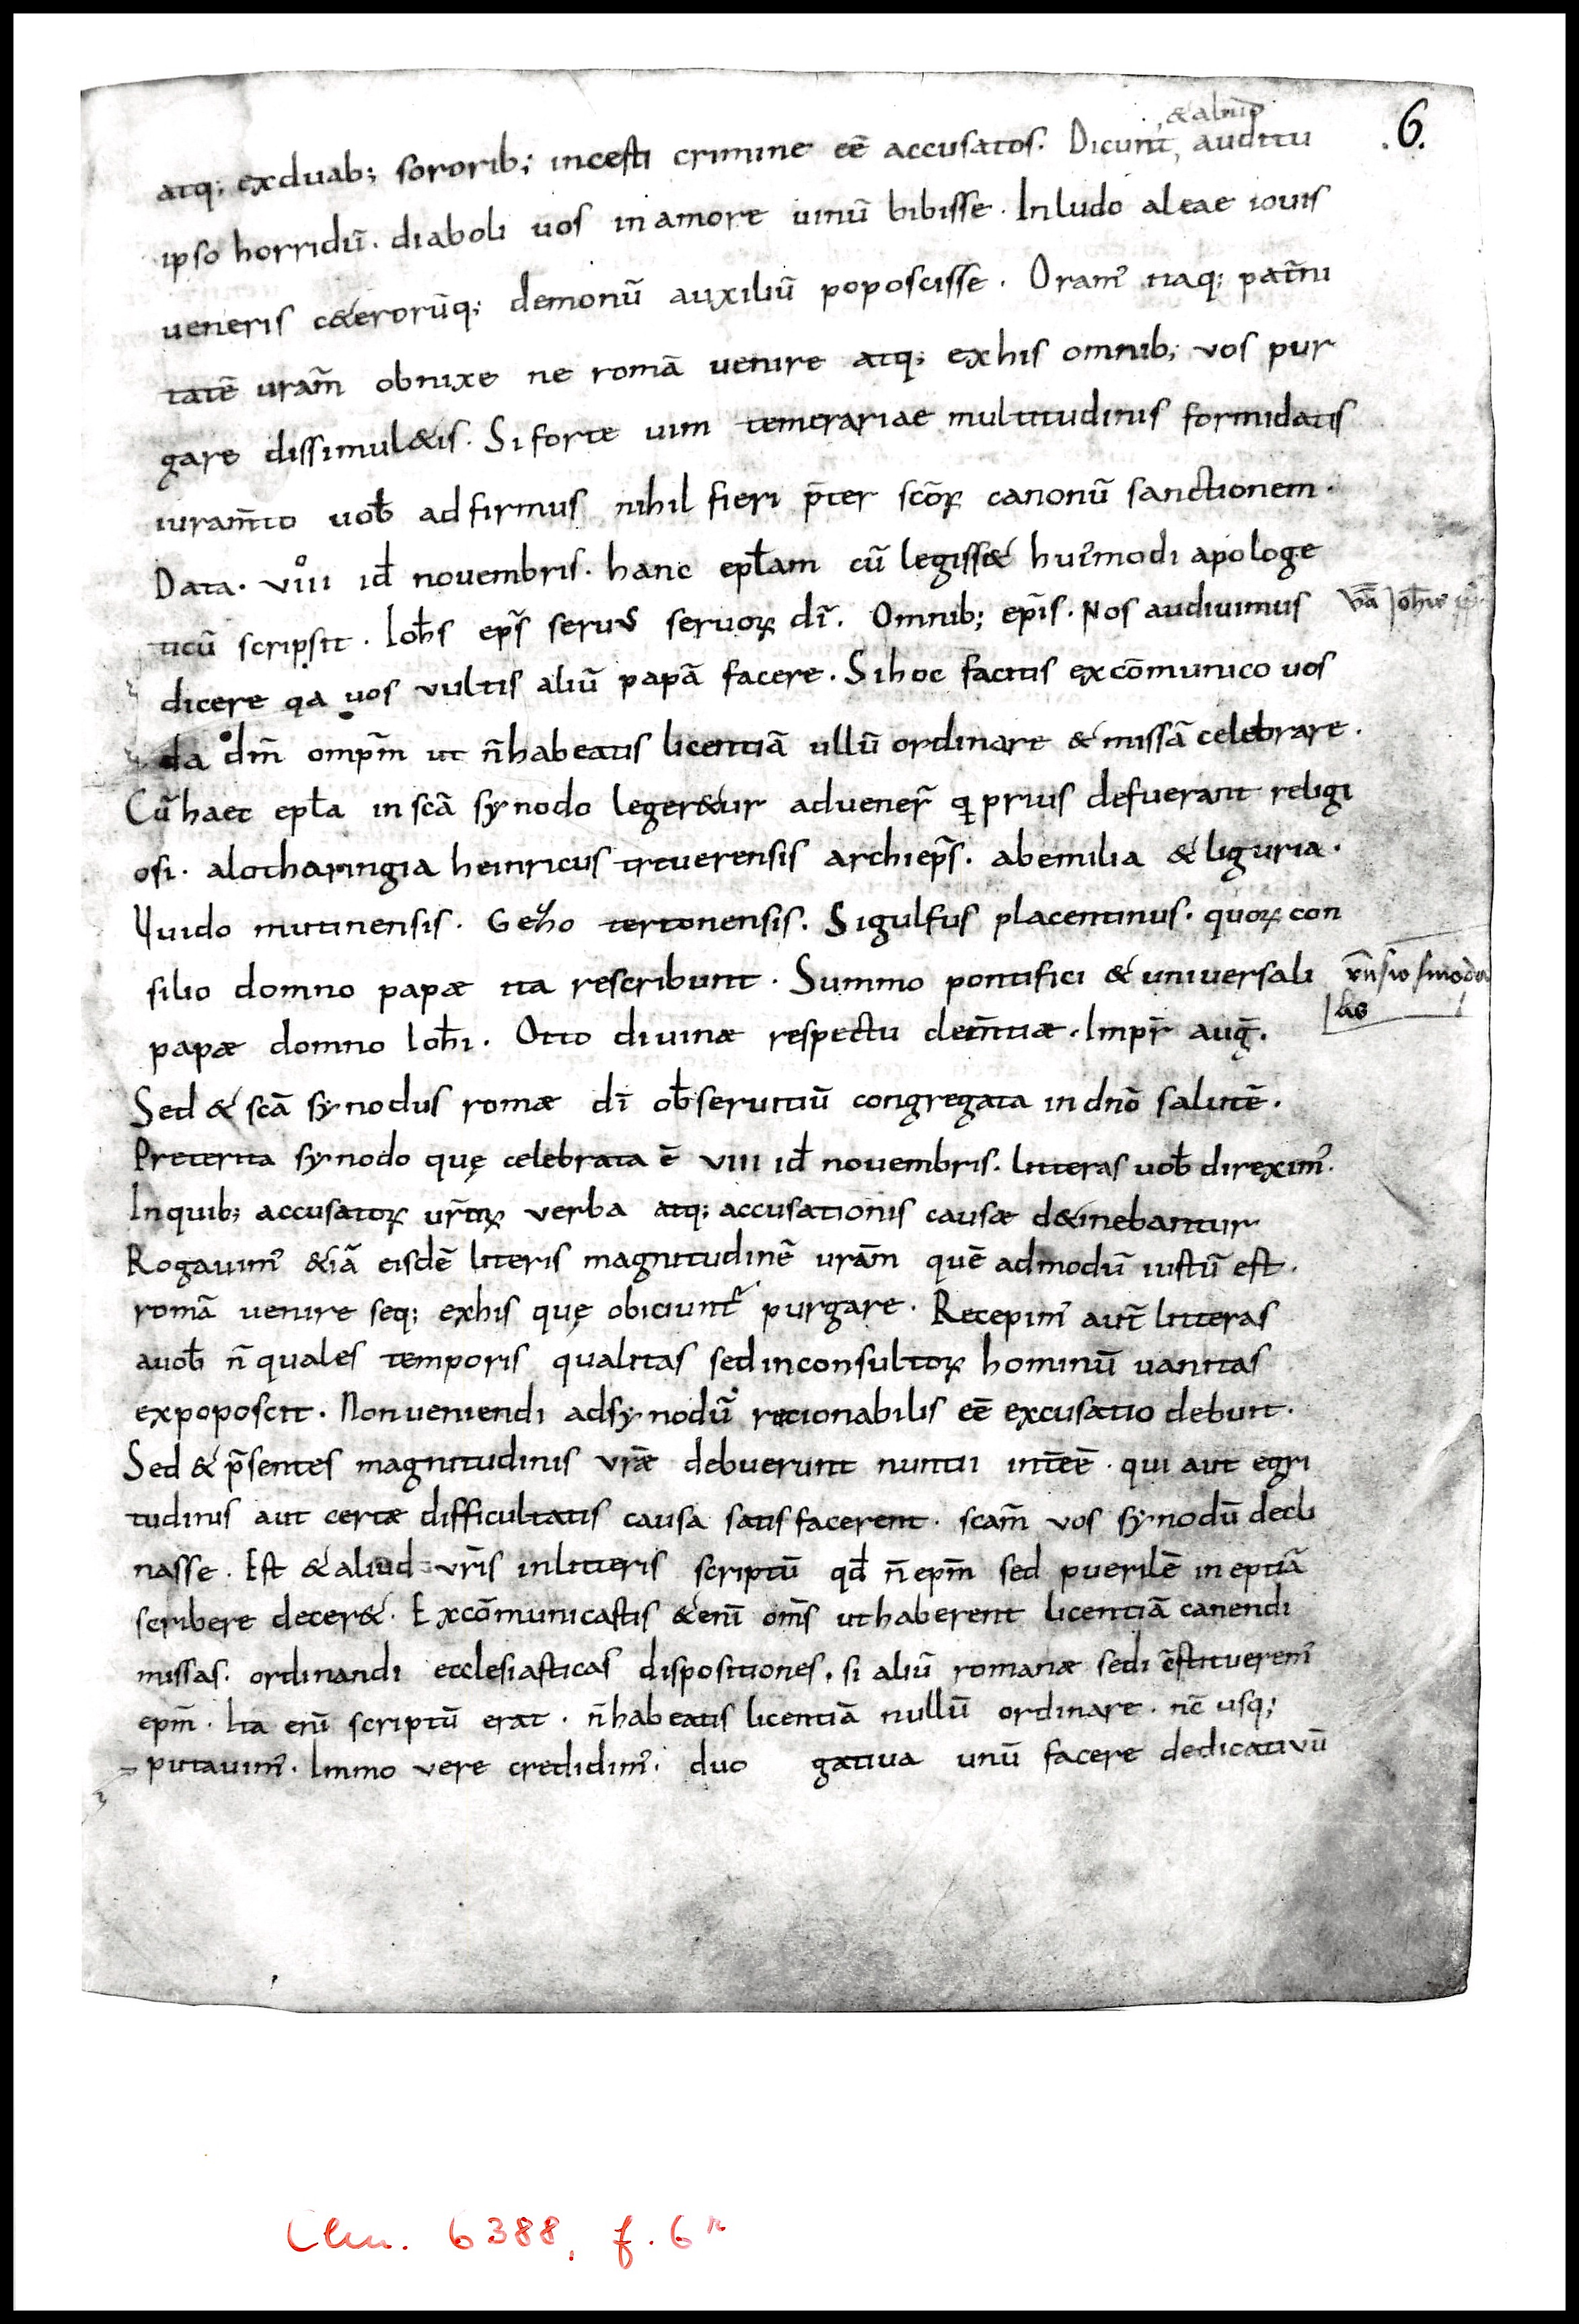 & aliud
.6.
atq; exduab; sororib; incesti crimine eē accusatos. Dicunt, auditu
ipso horridū. diaboli vos in amore uinū bibisse. In ludo aleae iouis
ueneris c&erorūq; demonū auxiliū poposcisse. Oram' itaq; pat̄ni
tatē uram̄ obnixe ne romā uenire atq; exhis omnib; vos pur
gare dissimul&is. Si forte uim temerariae multitudinis formidatis
iuram̄to uob̄ adfirmus nihil fieri p̄ter sc̄oꝝ canonū sanctionem.
Data. viiiº id̄ novembris. hanc epłam cū legiss& hui'modi apologe
ticū scripsit. Ioħs ep̄s seruus seruoꝝ dī. Omnib; ep̄is. Nos audiuimus
dicere qa uos vultis aliū papā facere. Si hoc facitis excōmunico uos
da dm̄ omp̄m ut n̄ habeatis licentiā ullū ordinare & missā celebrare.
Cū haec epła in scā synodo leger&ur aduener̄ q prius defuerant religi
osi. alotharingia heinricus treuerensis archiep̄s. abemilia & liguria.
Vuido mutinensis. Gezo tertonensis. Sigulfus placentinus. quoꝝ con
silio domno papæ ita rescribunt. Summo pontifici & uniuersali
papæ domno Ioħi. Otto diuinæ respectu clem̄tiæ. Impr̄ auḡ.
Sed & scā synodus romæ dī ob̄seruitiū congregata in dn̄o salutē.
Preterita synodo quę celebrata ē viii id̄ nouembris. litteras uob̄ direxim'.
In quib; accusatoꝝ ur̄roꝝ verba atq; accusationis causæ d&inebantur
Rogauim' &iā eisdē literis magnitudinē uram̄ quē admodū iustū est.
romā uenire seq; exhis quę obiciunt' purgare. Recepim' aut̄ litteras
auob̄ n̄ quales temporis qualitas sed inconsultoꝝ hominū uanitas
expoposcit. Non veniendi adsynodū racionabilis eē excusatio debuit.
Sed & p̄sentes magnitudinis vrǣ debuerunt nuntii int̄eē. qui aut egri
tudinis aut certæ difficultatis causa satis facerent. scam̄ vos synodū decli
nasse. Est & aliud vr̄is in litteris scriptū qd̄ n̄ ep̄m sed puerilē ineptiā
scribere decer&. Excōmunicastis &enī om̄s ut haberent licentiā canendi
missas. ordinandi ecclesiasticas dispositiones, si aliū romanæ sedi c̄stituerem'
ep̄m. Ita enī scriptū erat. n̄ habeatis licentiā nullū ordinare. nc̄ usq;
putauim'. Immo vere credidim'. duo gatiua unū facere dedicatiuū
Clm. 6388, f. 6r